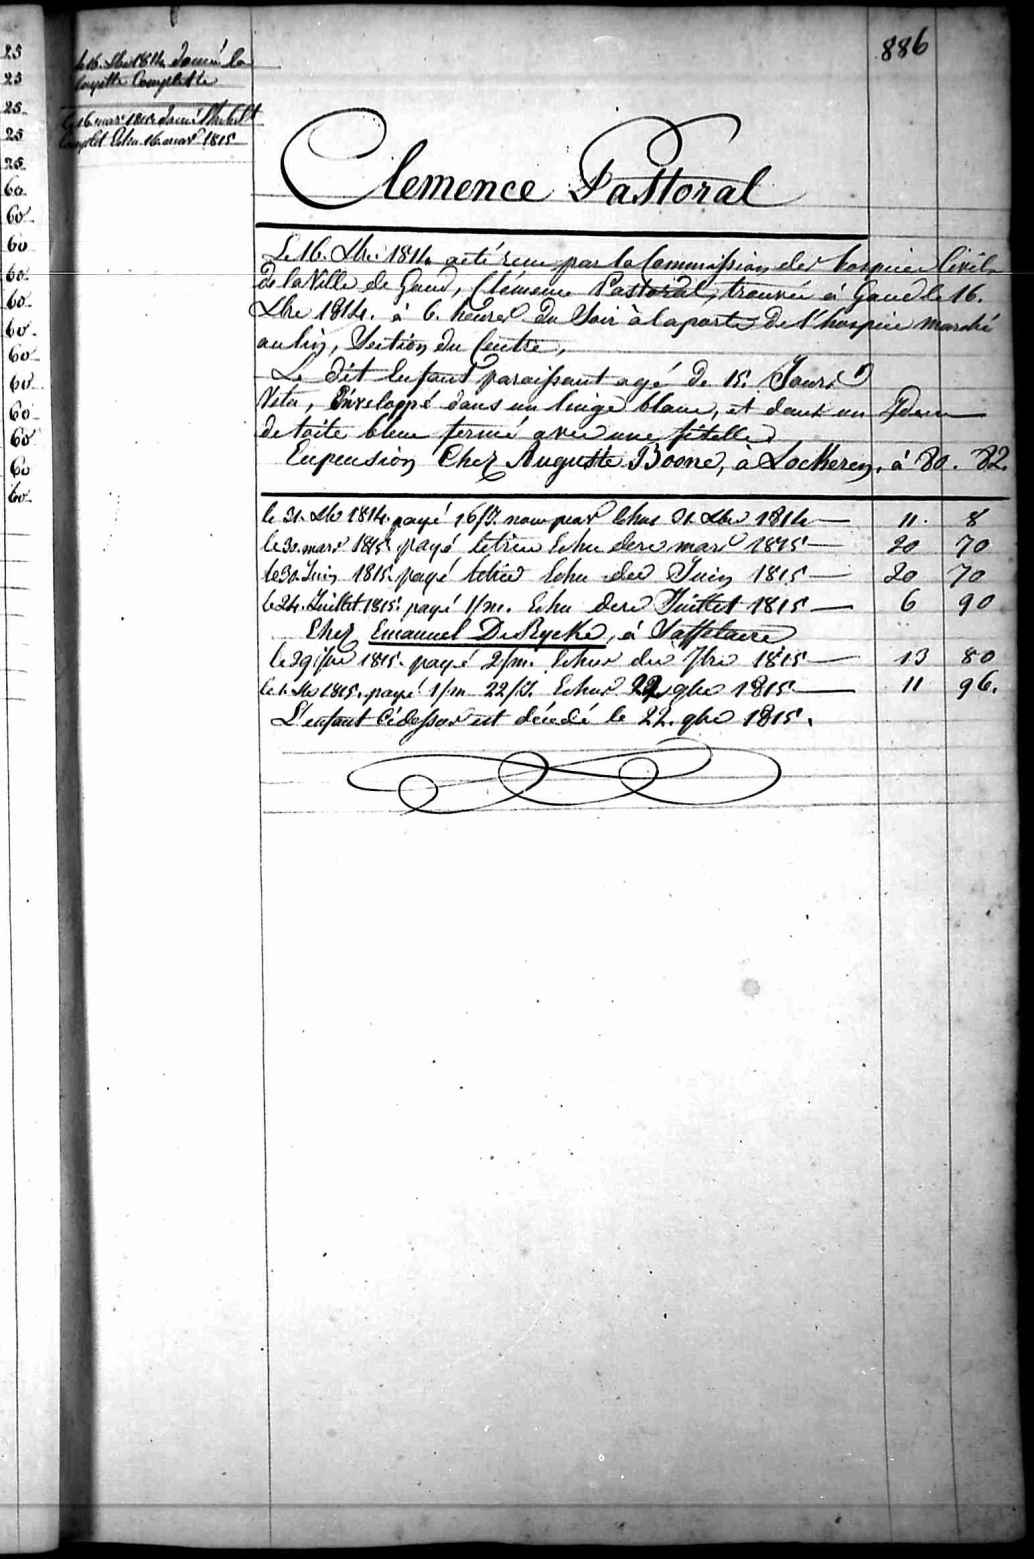 25
25
25
25
25
60
60
60
60
60
60
60
60
60
60
60
60
le 16. Xbre 1814 donné la
layette Complette
le 16 mars 1815 donné
Complet Echu 16 mars 1815
886
Clemence Pastoral
Le 16. Xbre. 1814 a été recu par la Commission des hospices Civils
de la Ville de Gand, Clémence Pastoral, trouvée à Gand le 16.
Xbre 1814. à 6. heures du Soir à la porte de l'hospice marché
au lin, Section du Centre,
Le dit Enfant paraissant agé de 15. Jours
Vetu, Enveloppé dans un linge blanc, et dans un
de toile bleue fermé avec une fitelle
En pension Chez Auguste Boone, à Lockeren, à 80. 82.
le 31. Xbre 1814. payé 16/J. nourr pour Echus 31 Xbre 1814 — 11. 8
le 30. mars 1815 payé letrim Echu dere mars 1815 — 20 70
le 30. Juin 1815. payé letrim Echu der Juin 1815 — 20 70
le 24. Juillet 1815. payé 1/m. Echu dere Juillet 1815 — 6 90
Chez Emanuel DeRycke, à Saffelaere
le 1815. payé 2/m. Echus der 7bre 1815 — 13 80
le 1. Xbre 1815. payé 1/m 22/J. Echus 22 9bre 1815. — 11 96.
L'enfant Cidessus est décédé le 22. 9bre 1815.